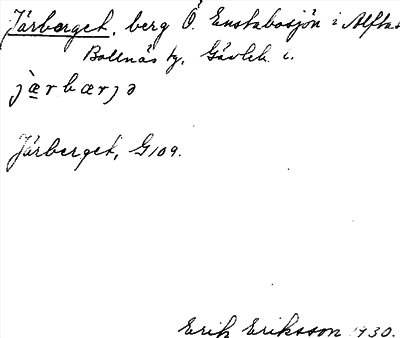 Järberget, berg Ö. Enstabosjön i Alfta s
Bollnäs tg, Gävleb. l.
jæ̀rbærjə
Järberget, G109.
Erik Eriksson 1930.